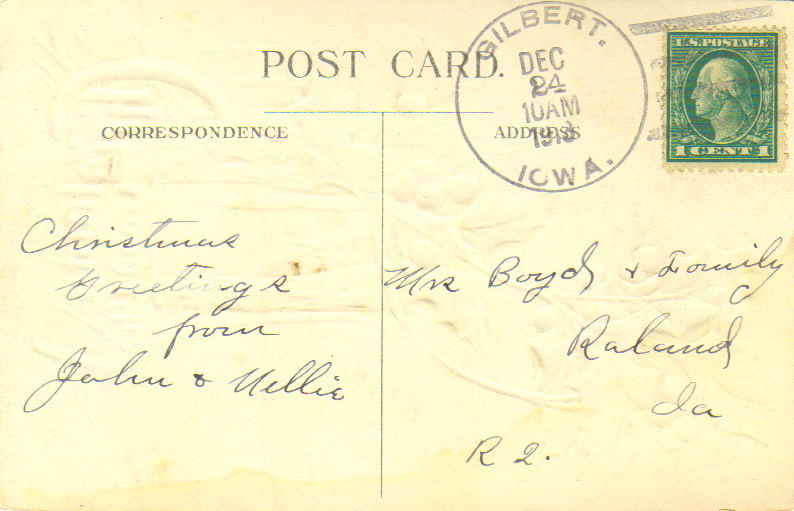 POST CARD.
GILBERT.
DEC
24
10AM
1913
IOWA.
U.S. POSTAGE
1 CENT 1
CORRESPONDENCE
ADDRESS
Christmas
Greetings
from
John & Nellie
Mrs Boyd & Family
Roland
Ia
R 2.